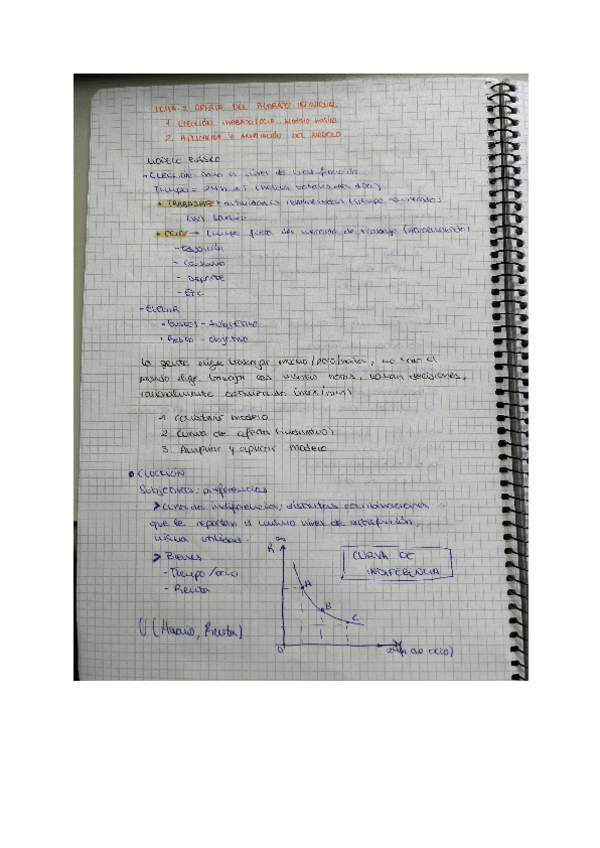 TEMA-2 OFERTA DEL TRABAJO INDIVIDUAL
1. ELECCIÓN TRABAJO/OCIO. MODELO BÁSICO
2. APLICACIÓN Y AMPLIACIÓN DEL MODELO
MODELO BÁSICO
- ELECCIÓN: nivel de
Tiempo = 24h
• TRABAJAR
• OCIO → tiempo fuera del mercado de trabajo
- Educación
- Consumo
- Deporte
- ETC
- ELEGIR
• Gustos - subjetivo
• - objetivo
La gente elige trabajar mucho/poco/nada, no todo el
mundo elige trabajar las mismas horas, toman decisiones,
racionalmente
1. Construir modelo
2. Curva de oferta (individuo)
3. Ampliar y aplicar modelo
• ELECCIÓN
Subjetivas: preferencias
> Curva de indiferencia: distintas combinaciones
que le reportan el mismo nivel de satisfacción,
misma utilidad.
> Bienes
- Tiempo/ocio
- Renta
CURVA DE
INDIFERENCIA
R
∞
A
B
C
U (, Renta)
0
24h de ocio)